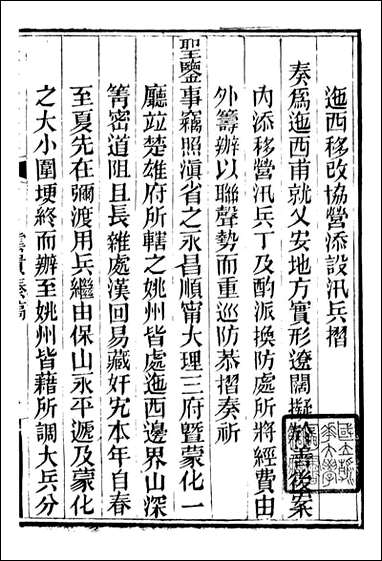 迤西移改協營添設汛兵摺
奏爲迤西甫就乂安地方實形遼闊擬於善後案
內添移營汛兵丁及酌派換防處所將經費由
外籌辦以聯聲勢而重巡防恭摺奏祈
聖鑒事竊照滇省之永昌順甯大理三府暨蒙化一
廳竝楚雄府所轄之姚州皆處迤西邊界山深
箐密道阻且長雜處漢回易藏奸宄本年自春
至夏先在彌渡用兵繼由保山永平遞及蒙化
之大小圍埂終而辦至姚州皆藉所調大兵分
雲貴奏稿